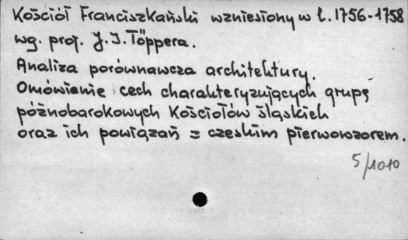 Kościół Franciszkański wzniesiony w ł. 1756-1758
wg. proj. J.J. Töppera.
Analiza porównawcza architektury.
Omówienie cech charakteryzujących grupę
późnobarokowych Kościołów śląskich
oraz ich powiązań z czeskim pierwowzorem.
5/1010